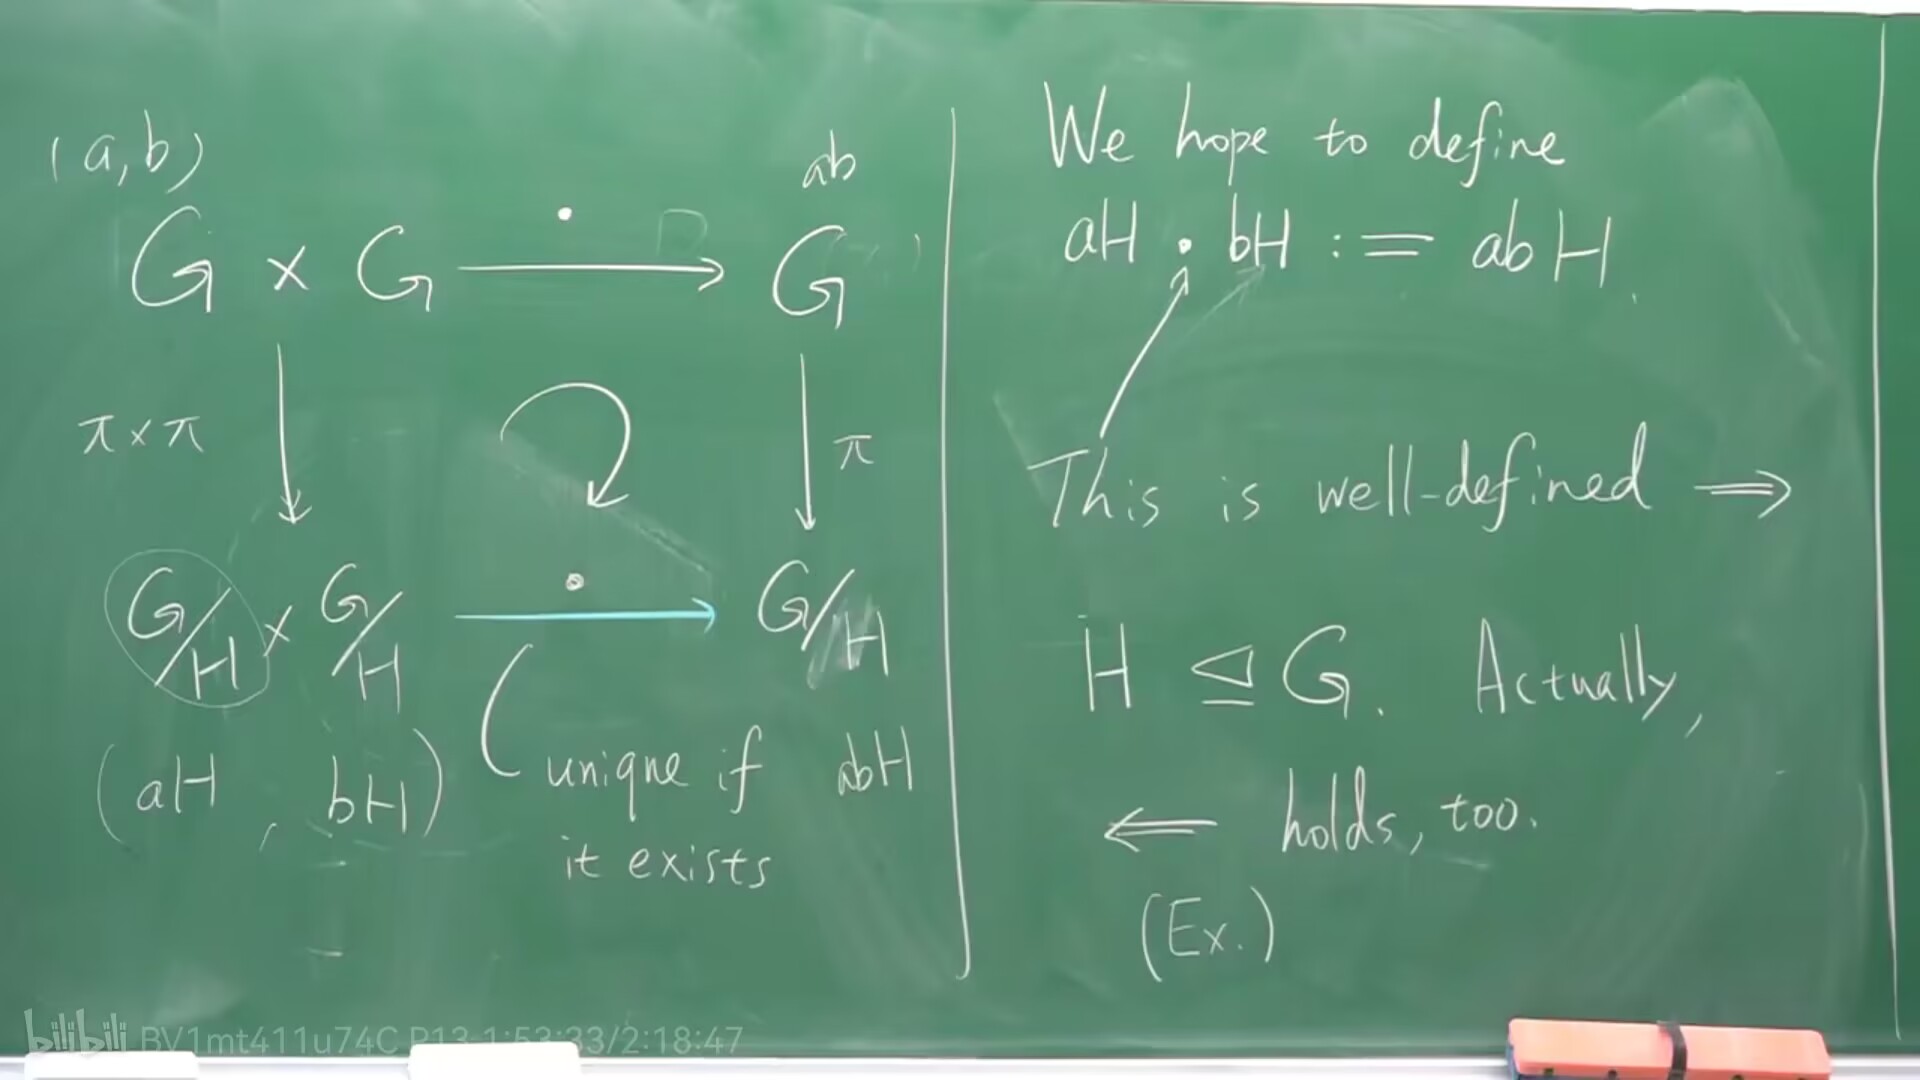 (a,b)
ab
G × G ⟶ G
·
π×π
π
G/H × G/H ⟶ G/H
·
(aH , bH)
unique if
abH
it exists
We hope to define
aH · bH := abH.
This is well-defined ⟹
H ⊴ G. Actually,
⟸ holds, too.
(Ex.)
bilibili BV1mt411u74C P13 1:53:33/2:18:47